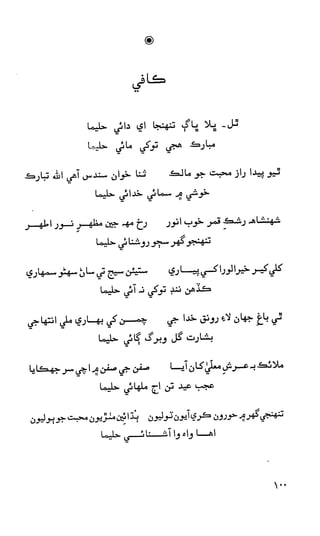 ڪافي
ٿل۔ ڀلا ڀاڳ تنھنجا اي دائي حليما
مبارڪ ھجي توکي مائي حليما
ٿيو پيدا راز محبت جو مالڪ ثنا خوان سندس آھي الله تبارڪ
خوشي ۾ سمائي خدائي حليما
شھنشاھ رشڪِ قمر خوب انور رخ مھ جبين مظھرِ نور اطھر
تنھنجو گھر سڄو روشنائي حليما
کلي کير خيرالورا کي پياري ستيئن سيج تي ساڻ سھڻو سمھاري
ڪڏھن ننڊ توکي نہ آئي حليما
ٿي باغ جھان لاءِ رونق خدا جي چمن کي بھاري ملي انتھا جي
بشارت گل وبرگ ڳائي حليما
ملائڪ بہ عرشِ معليٰ کان آيا صفن جي صفن ۾ اچي سر جھڪايا
عجب عيد تن اڄ ملھائي حليما
تنھنجي گھر ۾ حورون ڪري آيون ٽوليون ٻڌائين مٺڙيون محبت جو ٻوليون
اھا واھ وا آشنائي حليما
۱۰۰